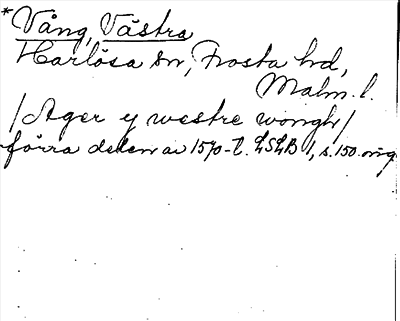 *Vång, Västra
Harlösa sn, Frosta hd,
Malm. l.
/Ager y westre wongh/
förra delen av 1570-t. LSLB 1, s. 150. orig